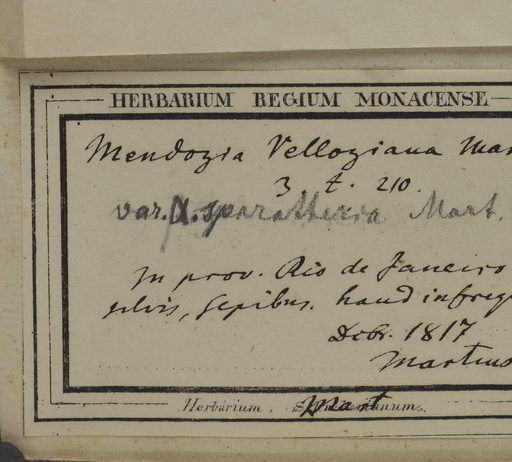 HERBARIUM REGIUM MONACENSE
Mendozia Velloziana Mar
3 t. 210.
var. sparattezia Mart.
In prov. Rio de Janeiro
silvis, sepibus. haud infreq
Dcbr. 1817
Martius
Herbarium Mart